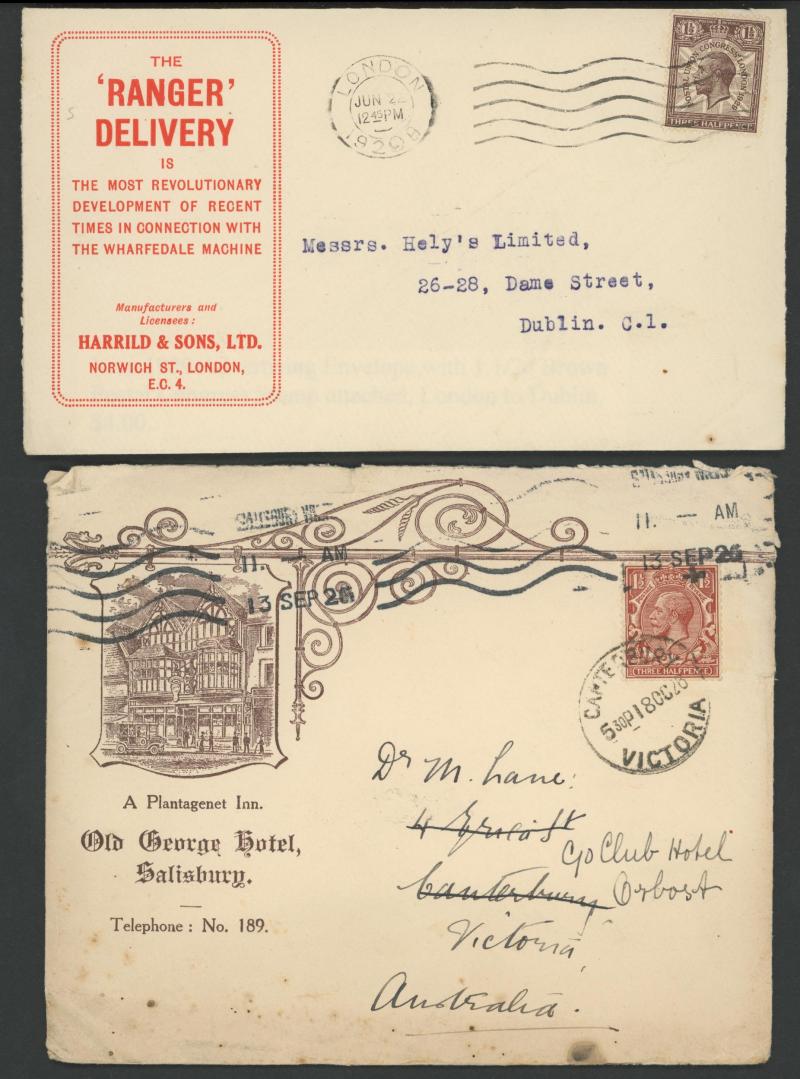 THE
'RANGER'
DELIVERY
IS
THE MOST REVOLUTIONARY
DEVELOPMENT OF RECENT
TIMES IN CONNECTION WITH
THE WHARFEDALE MACHINE
Manufacturers and
Licensees:
HARRILD & SONS, LTD.
NORWICH ST., LONDON,
E.C. 4.
LONDON
JUN 22
12 45 PM
1929
1½ 1½
POSTAL UNION CONGRESS LONDON 1929
THREE HALFPENCE
Messrs. Hely's Limited,
26-28, Dame Street,
Dublin. C.1.
SALISBURY WILTS
11. — AM
13 SEP 26
SALISBURY WILTS
11. — AM
13 SEP 26
1½ 1½
THREE HALFPENCE
CANTERBURY
5 30P 18 OC 26
VICTORIA
A Plantagenet Inn.
Old George Hotel,
Salisbury.
Telephone: No. 189.
Dr M. Lane:
4
Canterbury
Club Hotel
Orbost
Victoria
Australia.